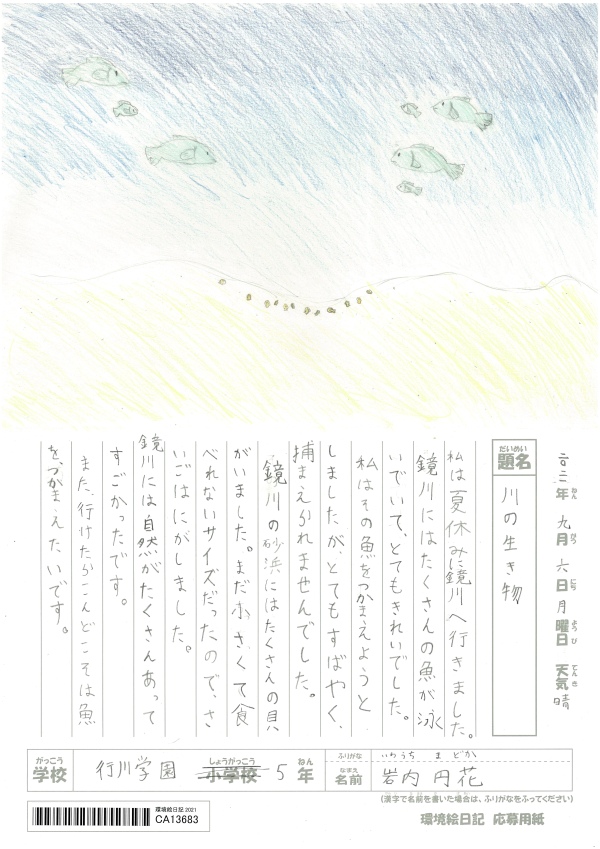 二〇二一年 九月 六日 月曜日 天気 晴
ねん がつ にち ようび てんき
だいめい
題名
川の生き物
私は夏休みに鏡川へ行きました。
鏡川にはたくさんの魚が泳
いでいて、とてもきれいでした。
私はその魚をつかまえようと
しましたが、とてもすばやく、
捕まえられませんでした。
鏡川の砂浜にはたくさんの貝
がいました。まだ小さくて食
べれないサイズだったので、さ
いごはにがしました。
鏡川には自然がたくさんあって
すごかったです。
また、行けたらこんどこそは魚
をつかまえたいです。
がっこう
学校
行川学園
しょうがっこう
小学校
5
ねん
年
ふりがな
いわうち まどか
なまえ
名前
岩内 円花
(漢字で名前を書いた場合は、ふりがなをふってください)
環境絵日記 2021
CA13683
環境絵日記 応募用紙